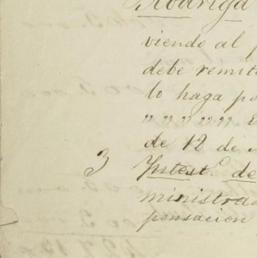 Rodriga
viendo al
debe remit
lo haga po
" " " " "
de 12 de
3 Yntest.º de
ministra
pensacion